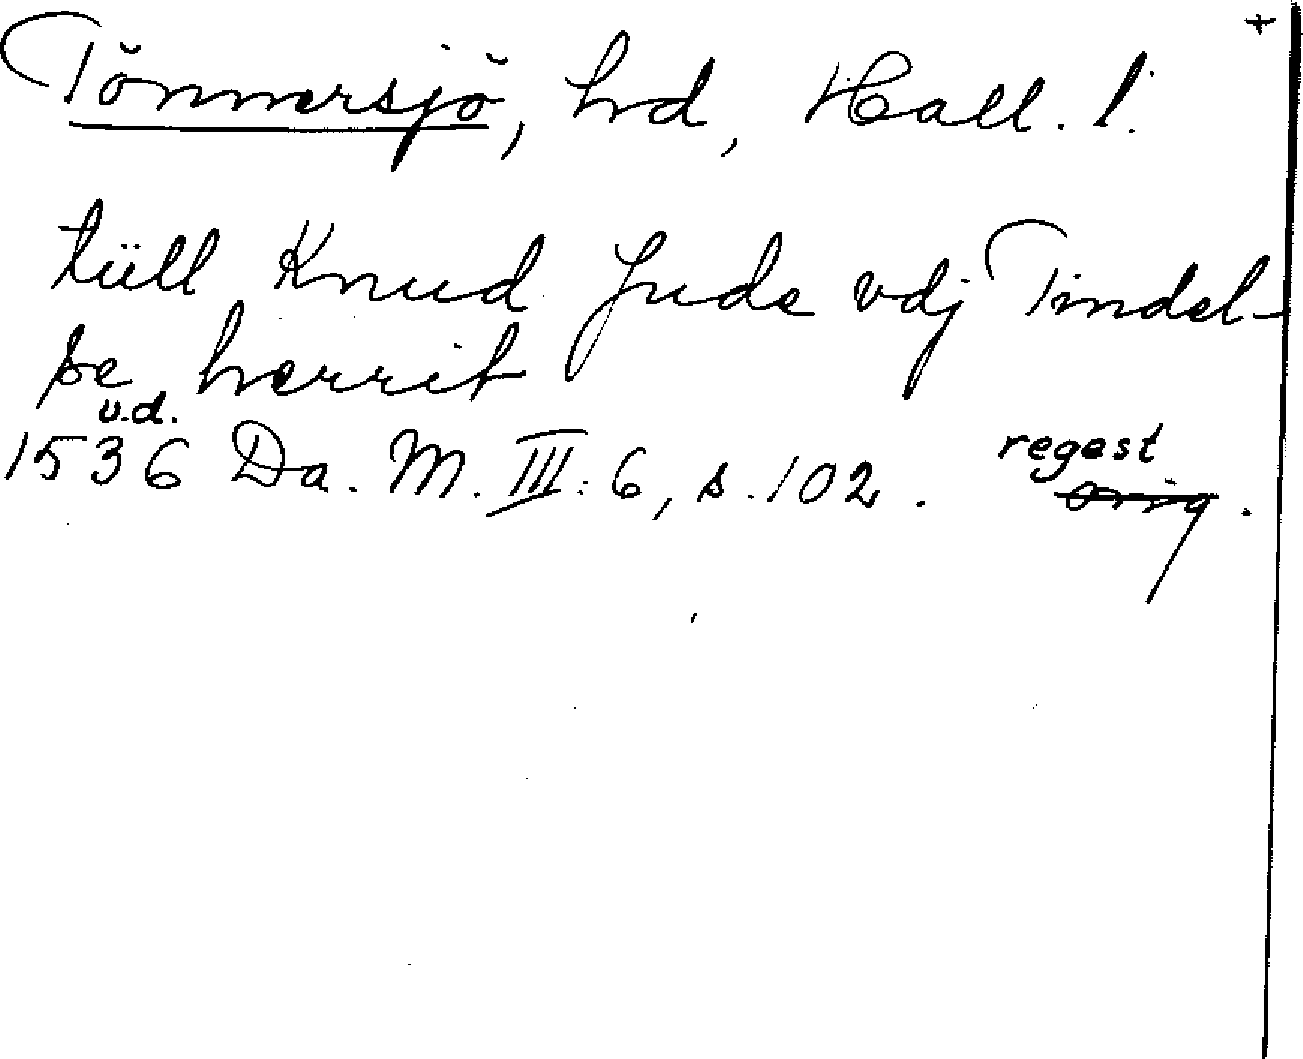 +
Tönnersjö, hd, Hall. l.
tüll Knud Jude vdj Tindel-
se herrit
u.d.
1536 Da. M. III: 6, s. 102. regest
orig.